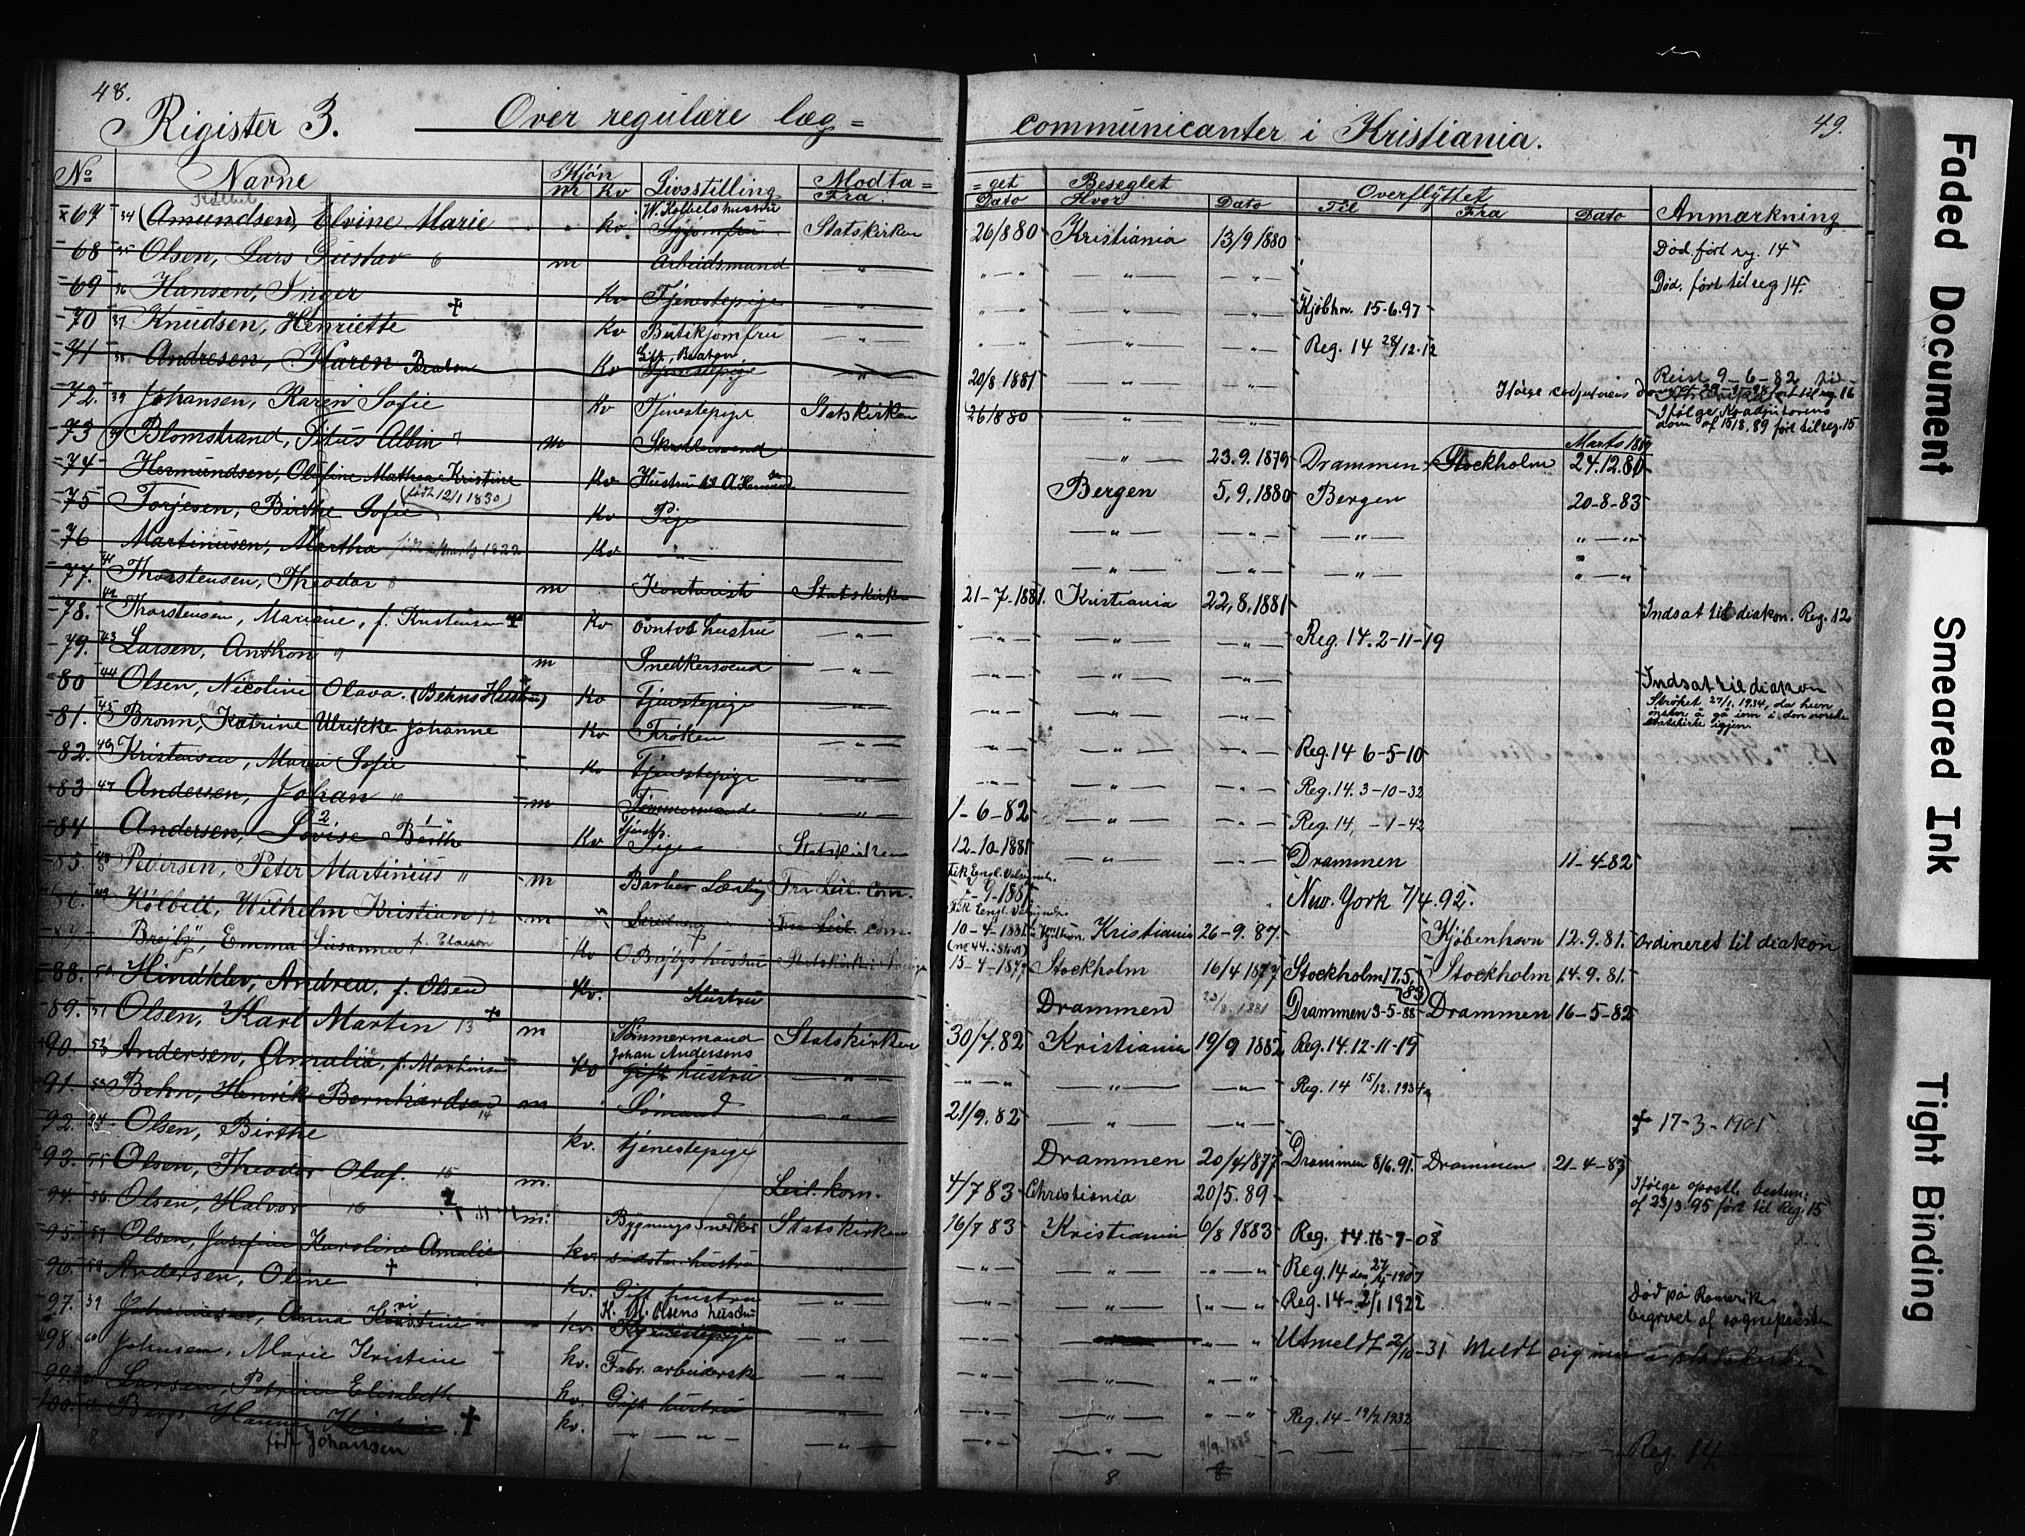 48.
Rigister 3. Over regulære læg=
No Navne Kjøn m kv Livsstilling Modta= Fra
67 34 (Amundsen) Elvine Marie kv. W. Kolbels hustru Syjomfru Statskirken
68 35 Olsen, Lars Gustav 6 m Arbeidsmand — " —
69 36 Hansen, Inger kv Tjenestepige "
70 37 Knudsen, Henriette + kv Butikjomfru — " —
71 38 Andresen, Karen Braton kv Gift, Braton. Tjenestepige "
72. 39 Johansen, Karen Sofie kv Tjenestepige Statskirken
73 40 Blomstrand, Titus Albin 7 m
74 Hermundsen, Olufine Mathea Kristine kv Hustru til A.
75 Torjesen, Birthe Sofie (født 12/1 1830) kv Pige
76 Martinusen, Martha født Marts 1822 kv — " —
77. 41 Thorstensen, Theodor 8 m Kontorist Statskirken
78. 42 Thorstensen, Mariane, f. Kristensen + kv ovntvs hustru — " —
79. 43 Larsen, Anthon 9 m Snedkersvend — " —
80 44 Olsen, Nicoline Olava. (Behns Hustru) kv Tjenestepige — " —
81. 45 Bronn, Katrine Ulrikke Johanne kv Frøken — " —
82. 46 Kristensen, Maren Sofie kv Tjenestepige — " —
83 47 Andersen, Johan 10 m Tømmermand — " —
84 Andersen, Lovise Berth kv Tjnstp. Pige Statskirken
85. 48 Pedersen, Peter Martinius 11 m Barber Lærling Fra Leil. Com.
86. 49 Kölbell, Wilhelm Kristian 12 m Fra Leil. com.
87. Brejby, Emma Susanna f. kv O. Brejbys hustru Statskirke i
88. 50 Hindklev, Andrea, f. Olsen kv. Hustru
89. 51 Olsen, Karl Martin 13 + m Tømmermand Statskirken
90. 52 Andersen, Amalia, f. Martinsen kv Johan Andersens gift hustru — " —
91. 53 Behn, Henrik Bernhardsen 14 m Sømand — " —
92. 54 Olsen, Birthe kv. tjenestepige
93. 55 Olsen, Theodor Olaf. 15 m. Leil. kom.
94. 56 Olsen, Halvor 16 m. Bygningssnedker Statskirken
95. 57 Olsen, Josefine Karoline Amalie kv. sidstes hustru "
96. 58 Andersen, Oline + kv. Gift hustru "
97. 59 Johannesen, Anna Kristine kv. K. M. Olsens hustru Tjenestepige — " —
98. 60 Johnsen, Marie Kristine kv. Fabr. arbeidersk — " —
99. Larsen, Petrine Elisabeth kv. Gift hustru — " —
100. Berg, Hanna Kristine + kv. — " — " — — " —
født Johansen
49.
communicanter i Kristiania.
=get Dato Beseglet Hvor Dato Overflyttet Til Fra Dato Anmærkning
26/880 Kristiania 13/9 1880 Død. ført reg. 14
" — " — " — — " — Død. ført til reg 14.
" — " — " — — " — Kjøbhv. 15-6.97
" — " — " — — " — Reg. 14 28/12.12
20/8 1881. — " — — " — Reist 9-6-82 til
Ifølge coadjutorens dom af 29-9-98 ført til reg 16
26/8 80 " — " — Ifølge Koadjutorens dom af 15/8.89 ført til reg. 15
" 23.9.1879 Drammen Stockholm Marts 1880 24.12.80
Bergen 5,9,1880 Bergen 20-8-83
— " — — " — — " — " — "
— " — — " — — " — " — "
21-7-1881. Kristiania 22,8,1881 Indsat til diakon. Reg. 12
— " — — " — — " — Reg. 14. 2-11-19
— " — — " — — " — Indsat til diakon
— " — — " — — " — Strøket 27/1 1934, da hun ønsker å gå inn i den norske statskirke igjen
— " — — " — — " — Reg. 14 6-5-10
— " — — " — — " — Reg. 14. 3-10-32
1-6-82 — " — — " — Reg. 14, -1-42
12-10-1881 — " — — " — Drammen 11-4-82
Fik Engl. Velsignels. -9-1881 New. York 7/4.92.
Fik Engl. Velsignels. 10-4-1881 i Kjøbhvn. Kristiania 26-9.87. Kjøbenhavn 12.9.81. Ordineret til diakon
(no 44. i Sth.) 15-4-1877 Stockholm 16/4 1877 Stockholm 17.5.83 Stockholm 14.9.81.
Drammen 23/8. 1881 Drammen 3-5-88 Drammen 16-5-82
30/7.82 Kristiania 19/9 1882 Reg. 14. 12-11-19
" — " — " — — " — Reg. 14 15/12. 1934
21/9.82 — " — — " — + 17-3-1905
Drammen 20/4/1877 Drammen 8/6.91. Drammen 21-4-83
4/7 83 Christiania 20/5.89 Ifølge apostl. bestem. af 23/3.95 ført til Reg. 15
16/7 83 Kristiania 6/8 1883 Reg. 14. 16-7-08
— " — — " — " — " Reg. 14 den 27/4 1907
— " — — " — " — " Reg. 14 - 2/1 1922 Død på Romerike begravet af sognepresten
— " — " — " Utmeldt 2/10-31 Meldt sig inn i statskirken
— " — — " — " — "
— " — — " — " — " Reg. 14 - 19/2 1932
— " — — " — 9/9. 1885 Reg. 14
8 8
Faded Document
Smeared Ink
Tight Binding